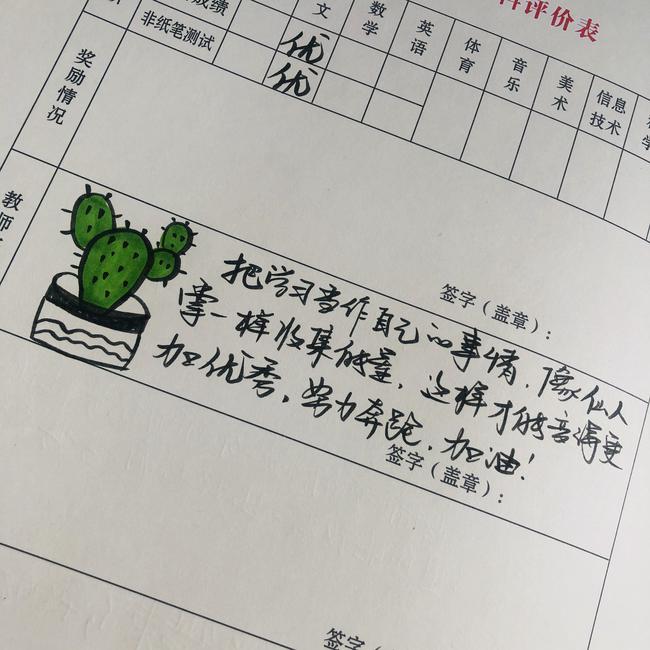 评价表
成绩
文
数学
英语
体育
音乐
美术
信息技术
学
非纸笔测试
优
优
奖励情况
签字（盖章）：
教师
把学习当作自己的事情，像仙人
掌一样收集能量，这样才能变得更
加优秀，努力奔跑，加油！
签字（盖章）：
签字